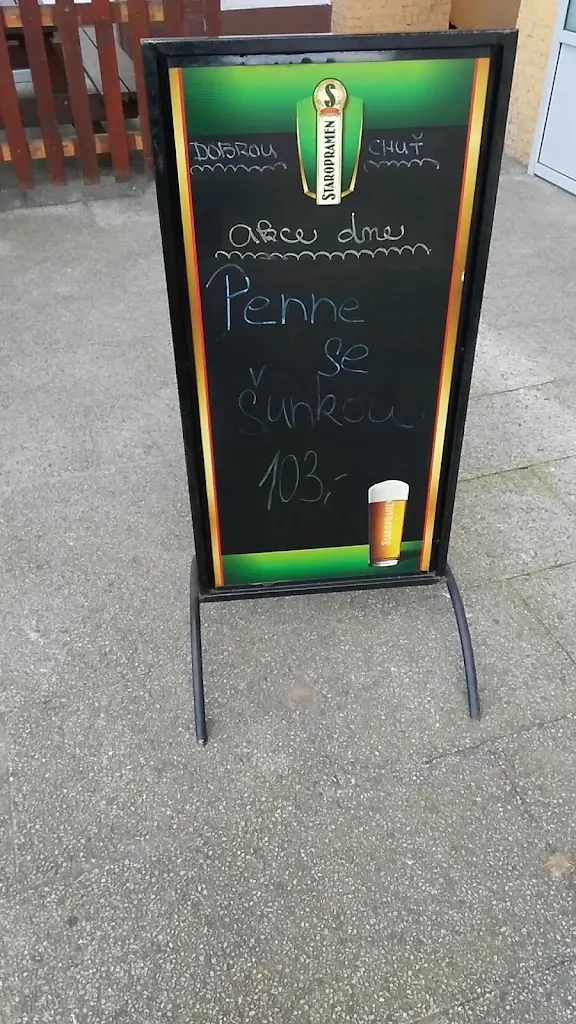 S
STAROPRAMEN
DOBROU CHUŤ
akce dne
Penne
se
šunkou
103,-
STAROPRAMEN